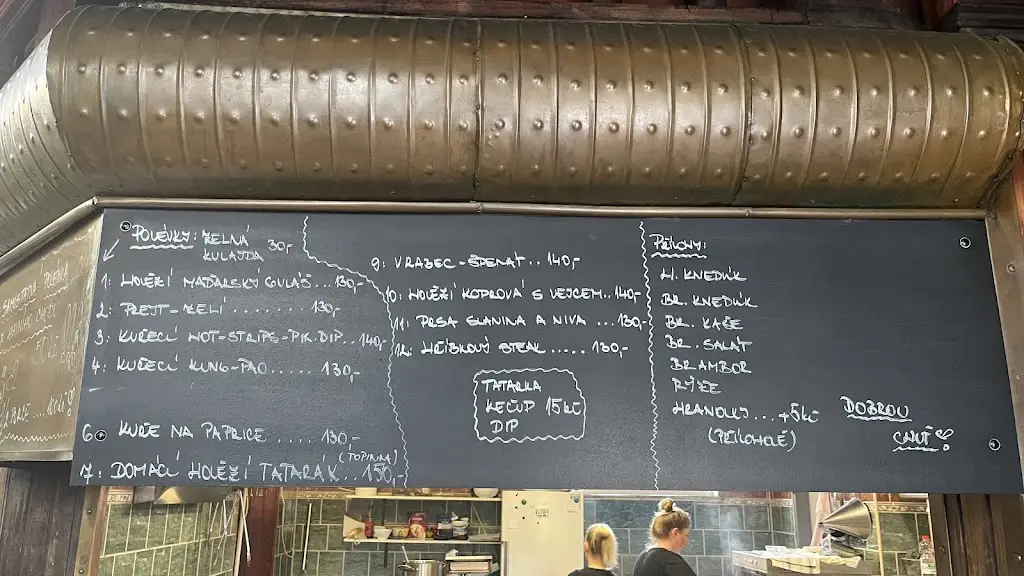 POLÉVKY: ZELNÁ 30,-
KULAJDA
1: HOVĚZÍ MAĎARSKÝ GULÁŠ...130,-
2: PREJT-ZELÍ ........ 130,-
3: KUŘECÍ HOT-STRIPS-PIK.DIP..140,-
4: KUŘECÍ KUNG-PAO ..... 130,-
6: KUŘE NA PAPRICE ..... 130,-
(TOPINKA)
7: DOMÁCÍ HOVĚZÍ TATARÁK..150,-
9: VRABEC-ŠPENÁT.. 140,-
10: HOVĚZÍ KOPROVÁ S VEJCEM..140,-
11: PRSA SLANINA A NIVA ...130,-
12: HŘÍBKOVÝ STEAK ..... 130,-
TATARKA
KEČUP 15kč
DIP
PŘÍLOHY:
H. KNEDLÍK
BR. KNEDLÍK
BR. KAŠE
BR. SALÁT
BRAMBOR
RÝŽE
HRANOLKY...+5kč
(PŘÍLOHOVÉ)
DOBROU
CHUŤ